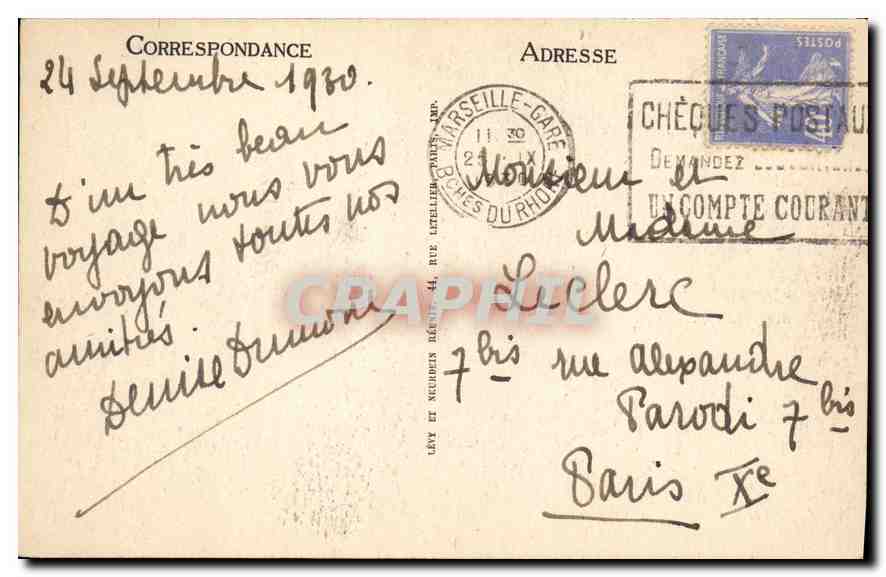 CORRESPONDANCE
24 Septembre 1930.
D'un très beau
voyage nous vous
envoyons toutes nos
amitiés.
Denise
LÉVY ET NEURDEIN RÉUNIS, 44, RUE LETELLIER, PARIS, IMP.
ADRESSE
MARSEILLE-GARE
11 30
25 IX
BCHES DU RHONE
POSTES
CHÈQUES POSTAU
DEMANDEZ
UN COMPTE COURANT
Monsieur et
Madame
Leclerc
7 bis rue Alexandre
Parodi 7 bis
Paris Xe
CRAPHIL